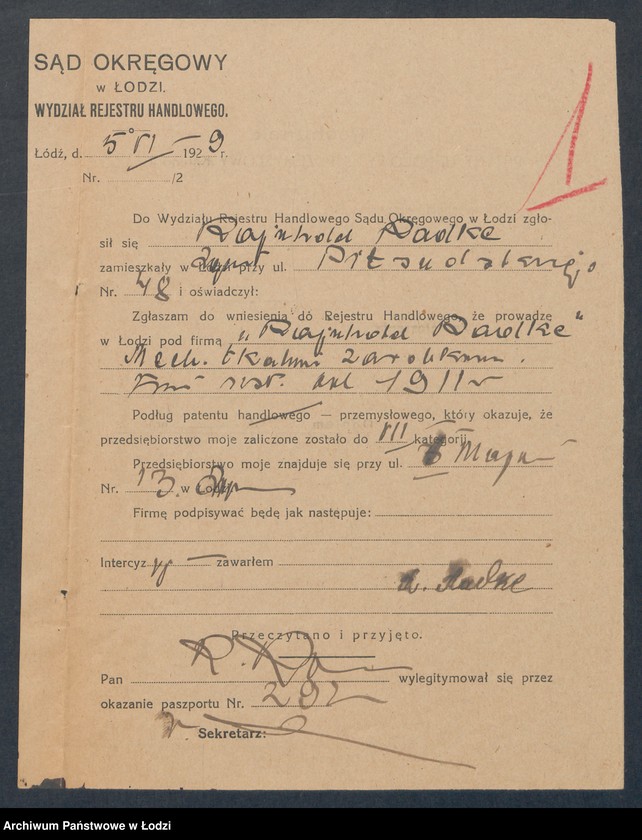 SĄD OKRĘGOWY
w ŁODZI.
WYDZIAŁ REJESTRU HANDLOWEGO.
Łódź, d. 5 VI 1929 r.
Nr. /2
Do Wydziału Rejestru Handlowego Sądu Okręgowego w Łodzi zgło-
sił się Rajnhold Radke
zamieszkały w Łodzi przy ul. Piłsudskiego
Nr. 48 i oświadczył:
Zgłaszam do wniesienia do Rejestru Handlowego, że prowadzę
w Łodzi pod firmą „Rajnhold Radke"
Mech. tkalnia zarobkowa.
od 1911 r
Podług patentu handlowego — przemysłowego, który okazuje, że
przedsiębiorstwo moje zaliczone zostało do VII kategorji.
Przedsiębiorstwo moje znajduje się przy ul. Maja
Nr. 13. w Łodzi
Firmę podpisywać będę jak następuje:
Intercyz zawarłem
R. Radke
Przeczytano i przyjęto.
Pan wylegitymował się przez
okazanie paszportu Nr. 292
Sekretarz:
Archiwum Państwowe w Łodzi